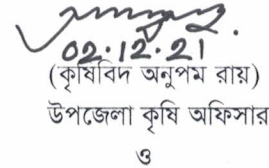 02.12.21
(কৃষিবিদ অনুপম রায়)
উপজেলা কৃষি অফিসার
ও